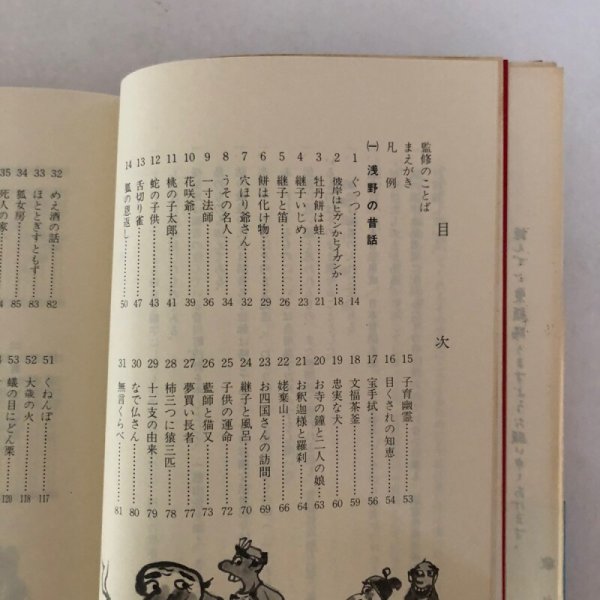 目次
監修のことば
まえがき
凡例
㈠ 浅野の昔話
1 ぐっつ……14
2 彼岸はヒガンかヒイガンか……18
3 牡丹餅は蛙……21
4 継子いじめ……23
5 継子と笛……26
6 餅は化け物……29
7 穴ほり爺さん……32
8 うその名人……34
9 一寸法師……36
10 花咲爺……39
11 桃の子太郎……41
12 蛇の子供……43
13 舌切り雀……47
14 狐の恩返し……50
15 子育幽霊……53
16 目くされの知恵……54
17 宝手拭……56
18 文福茶釜……59
19 忠実な犬……62
20 お寺の鐘と二人の娘……63
21 お釈迦様と羅刹……64
22 姥棄山……66
23 お四国さんの訪問……69
24 継子と風呂……70
25 子供の運命……72
26 藍師と猫又……73
27 夢買い長者……77
28 柿三つに猿三匹……78
29 十二支の由来……79
30 なで仏さん……80
31 無言くらべ……81
32 めえ酒の話……82
33 ほととぎすともず……83
34 狐女房……85
35 死人の家……84
51 くねんぼ……117
52 大歳の火……118
53 蟻の目にどん栗……120